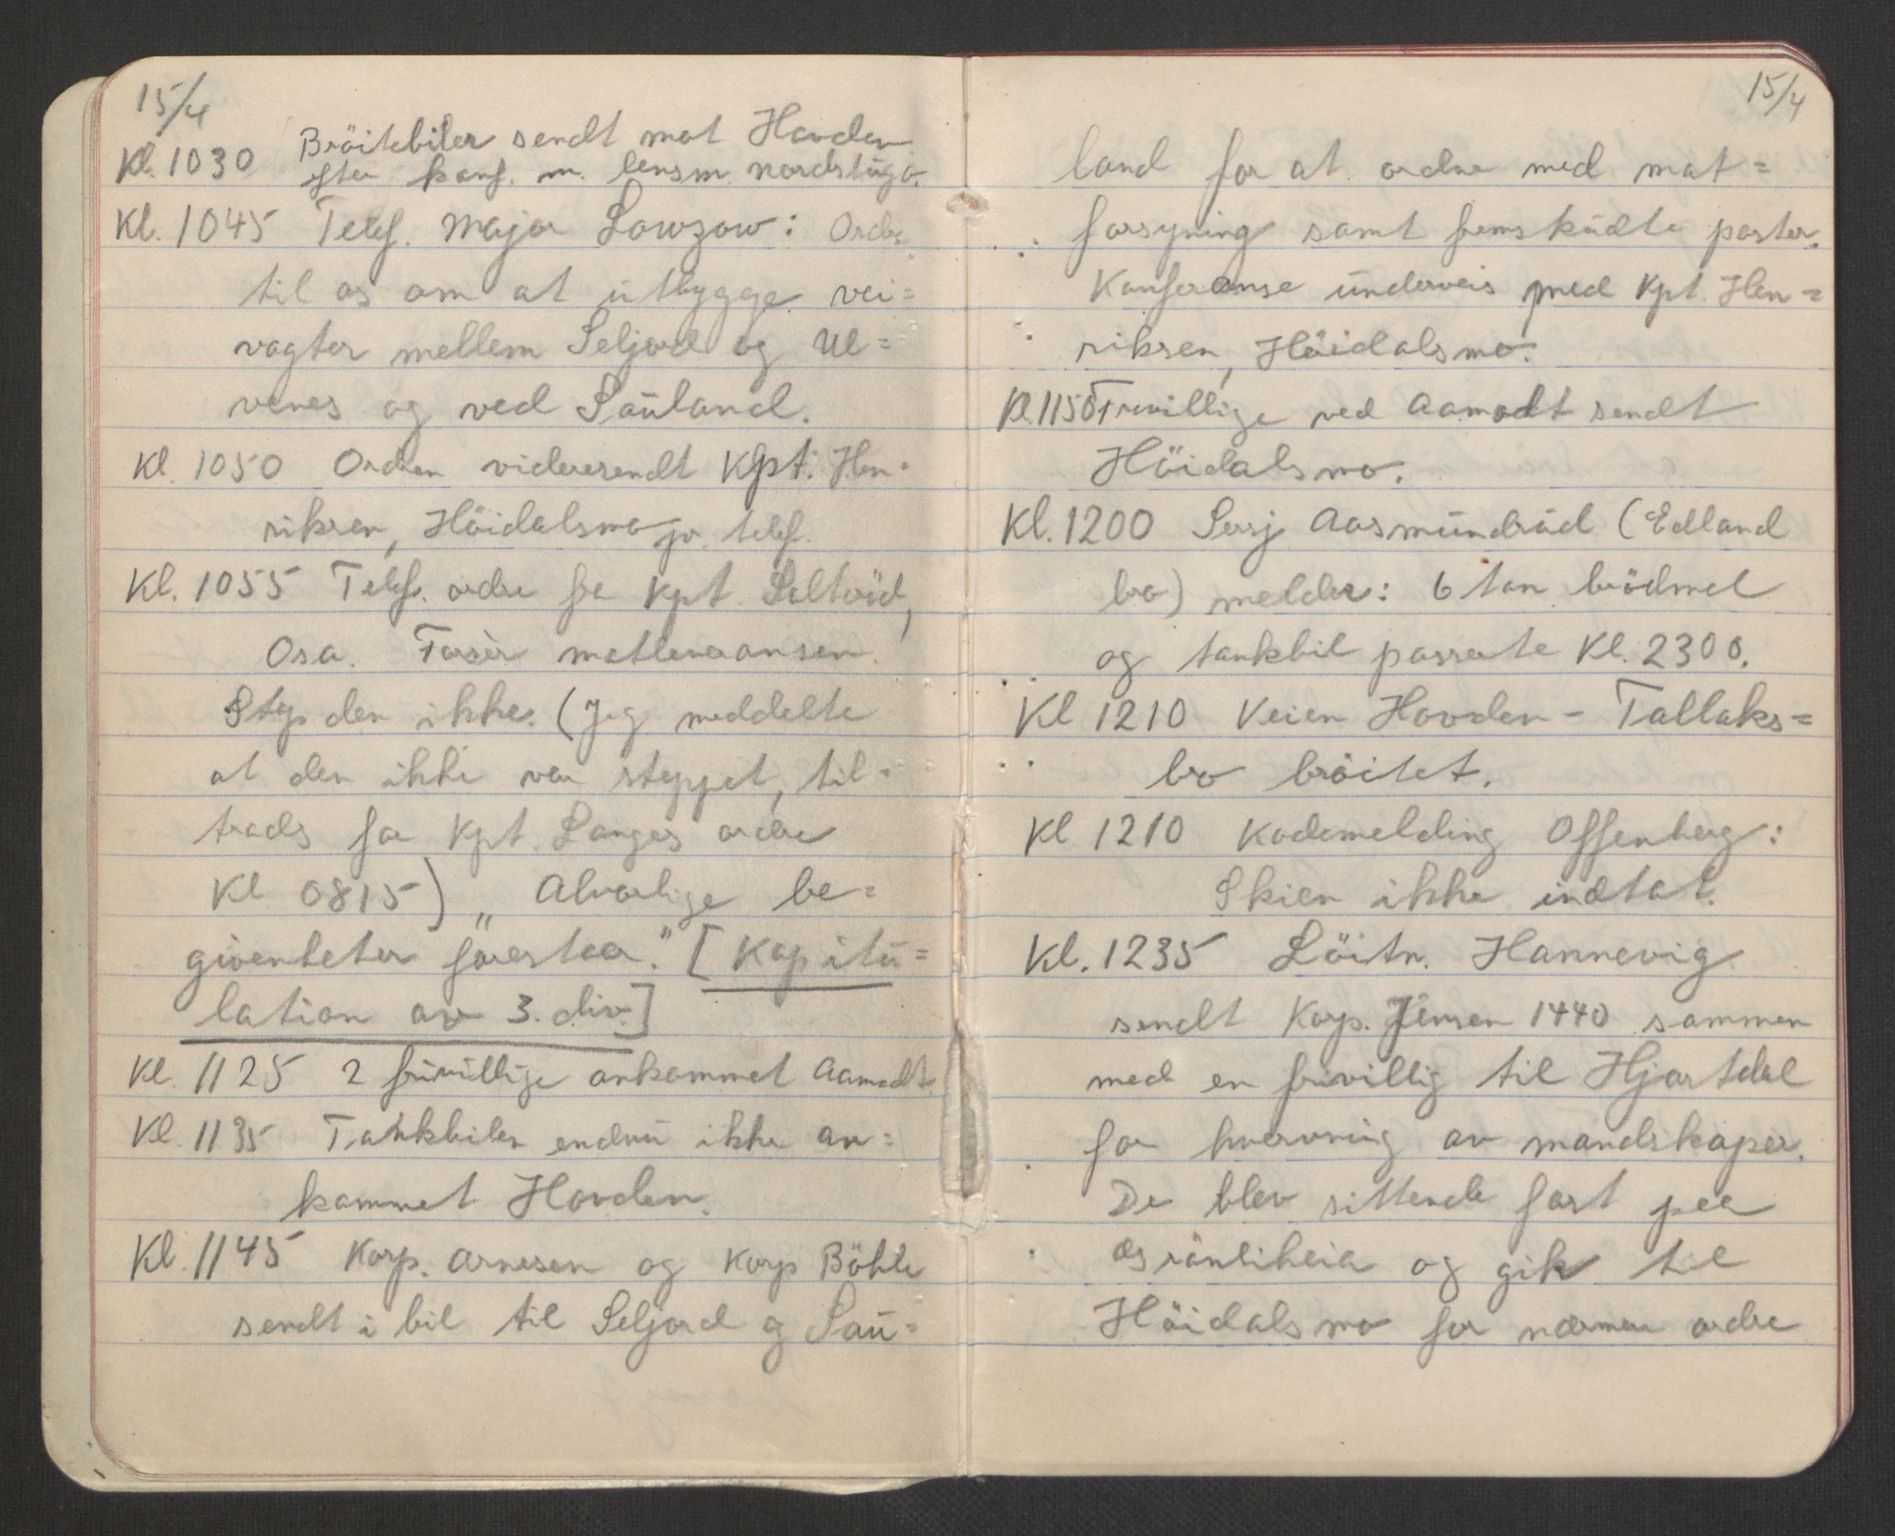 15/4
Kl. 1030 Bröitebiler sendt mot Hovden
efter konf. m. lensm. Nordstuga.
Kl. 1045 Telef. Major Lowzow: Ordre
til os om at utbygge vei=
vagter mellem Seljord og Ul=
venes og ved Sauland.
Kl. 1050 Ordren videresendt Kpt. Hen=
riksen, Höidalsmo pr. telef.
Kl. 1055 Telef. ordre fra Kpt. Seltvöd,
Osa. Forsèr matleveransen.
Stop den ikke. (Jeg meddelte
at den ikke var stoppet, til=
trods for Kpt. Langes ordre
Kl. 0815) „Alvorlige be=
givenheter forestaar." [Kapitu=
lation av 3. div.]
Kl. 1125 2 frivillige ankommet Aamodt.
Kl. 1135 Tankbilen endnu ikke an=
kommet Hovden.
Kl. 1145 Korp. Arnesen og Korp Böhle
sendt i bil til Seljord og Sau=
15/4
land for at ordne med mat=
forsyning samt fremskudte poster.
Konferanse underveis med Kpt. Hen=
riksen, Höidalsmo.
Kl. 1150 Frivillige ved Aamodt sendt
Höidalsmo.
Kl. 1200 Sersj Aasmundrud (Edland
bro) melder: 6 ton brödmel
og tankbil passerte Kl. 2300.
Kl 1210 Veien Hovden - Tallaks=
bro bröitet.
Kl 1210 Kodemelding Offenberg:
Skien ikke indtat.
Kl. 1235 Löitn. Hannevig
sendt Korp. Jensen 1440 sammen
med en frivillig til Hjartdal
for hverving av mandskaper.
De blev sittende fast paa
og gik til
Höidalsmo for nærmere ordre